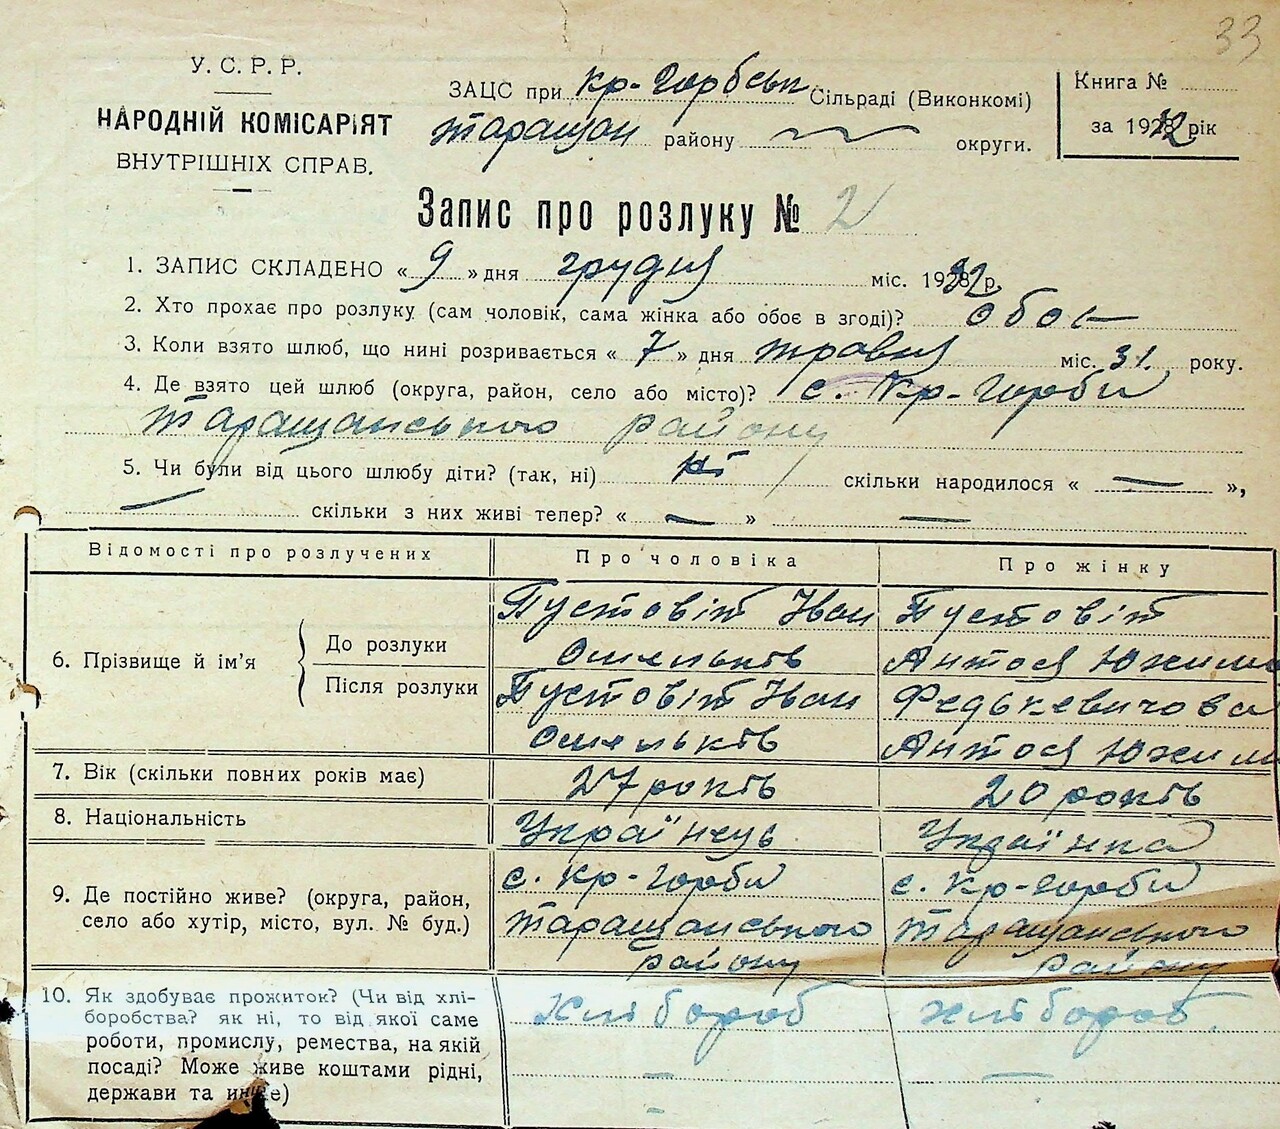 33
У. С. Р. Р.
НАРОДНІЙ КОМІСАРІЯТ
ВНУТРІШНІХ СПРАВ.
ЗАЦС при Кр-Горбськ Сільраді (Виконкомі)
Таращан району округи.
Книга №
за 1932 рік
Запис про розлуку № 2
1. ЗАПИС СКЛАДЕНО « 9 » дня грудня міс. 1932 р.
2. Хто прохає про розлуку (сам чоловік, сама жінка або обоє в згоді)? обоє
3. Коли взято шлюб, що нині розривається « 7 » дня травня міс. 31. року.
4. Де взято цей шлюб (округа, район, село або місто)? с. Кр-Горби
Таращанського району
5. Чи були від цього шлюбу діти? (так, ні) ні скільки народилося « — »,
— скільки з них живі тепер? « — » —
Відомості про розлучених Про чоловіка Про жінку
6. Прізвище й ім'я
До розлуки
Пустовіт Іван Пустовіт
Омельків Антося Южим
Після розлуки
Пустовіт Іван Федькевичова
Омельків Антося Южим
7. Вік (скільки повних років має) 27 років 20 років
8. Національність Українець Українка
9. Де постійно живе? (округа, район,
село або хутір, місто, вул. № буд.)
с. Кр-Горби с. Кр-Горби
Таращанського Таращанського
району району
10. Як здобуває прожиток? (Чи від хлі-
боробства? як ні, то від якої саме
роботи, промислу, ремества, на якій
посаді? Може живе коштами рідні,
держави та инше)
хлібороб хлібороб.